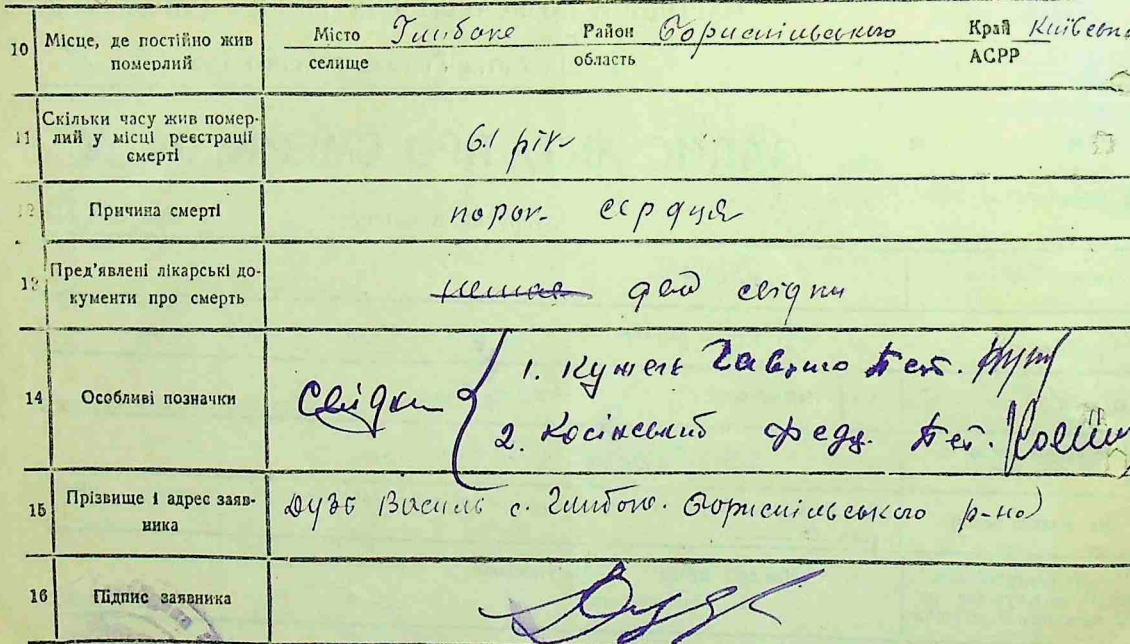 10 Місце, де постійно жив померлий
Місто Глибоке Район Бориспільського Край Київська
селище область АСРР
11 Скільки часу жив помер-
лий у місці реєстрації
смерті
61 рік
12 Причина смерті
порок сердця
13 Пред'явлені лікарські до-
кументи про смерть
немає два свідки
14 Особливі позначки
Свідки
1. Кужель Гаврило Пет.
2. Косінський Федр. Пет.
15 Прізвище і адрес заяв-
ника
Дузь Василь с. Глибоке. Бориспільського р-на
16 Підпис заявника